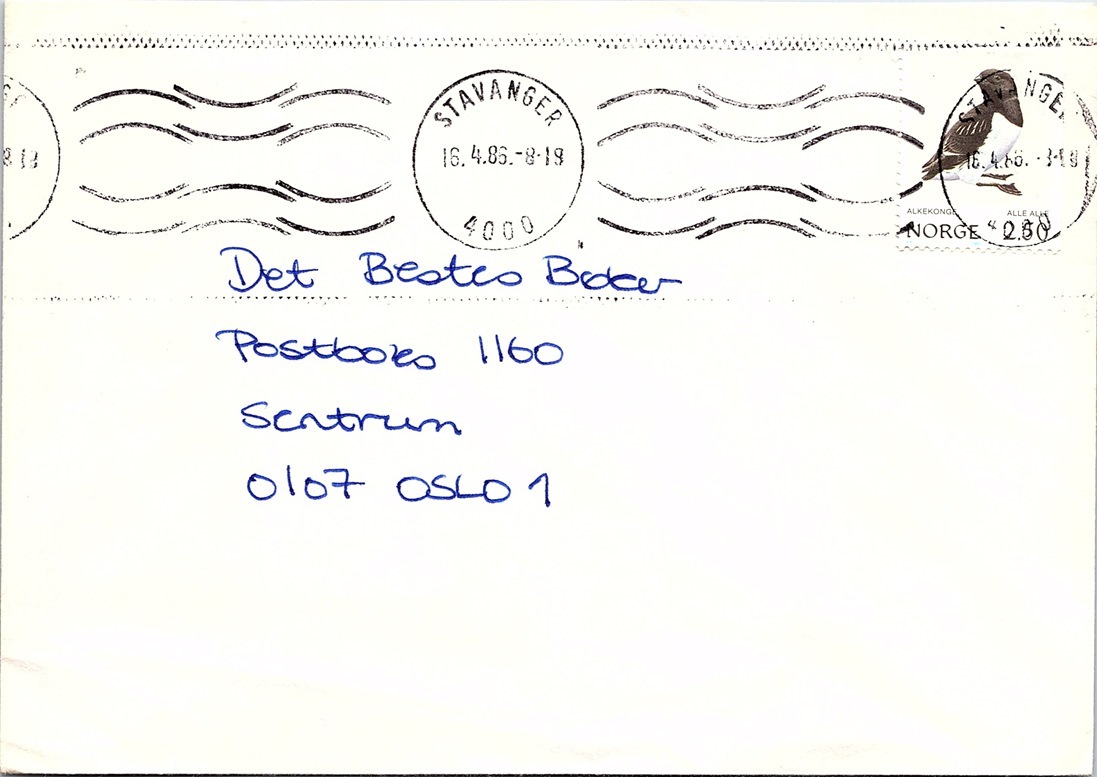 STAVANGER
16.4.86.-8-19
4000
STAVANGER
16.4.86.-8-19
4000
ALKEKONGE ALLE ALLE
NORGE 2.50
Det Bestes Bøker
Postboks 1160
Sentrum
0107 OSLO 1